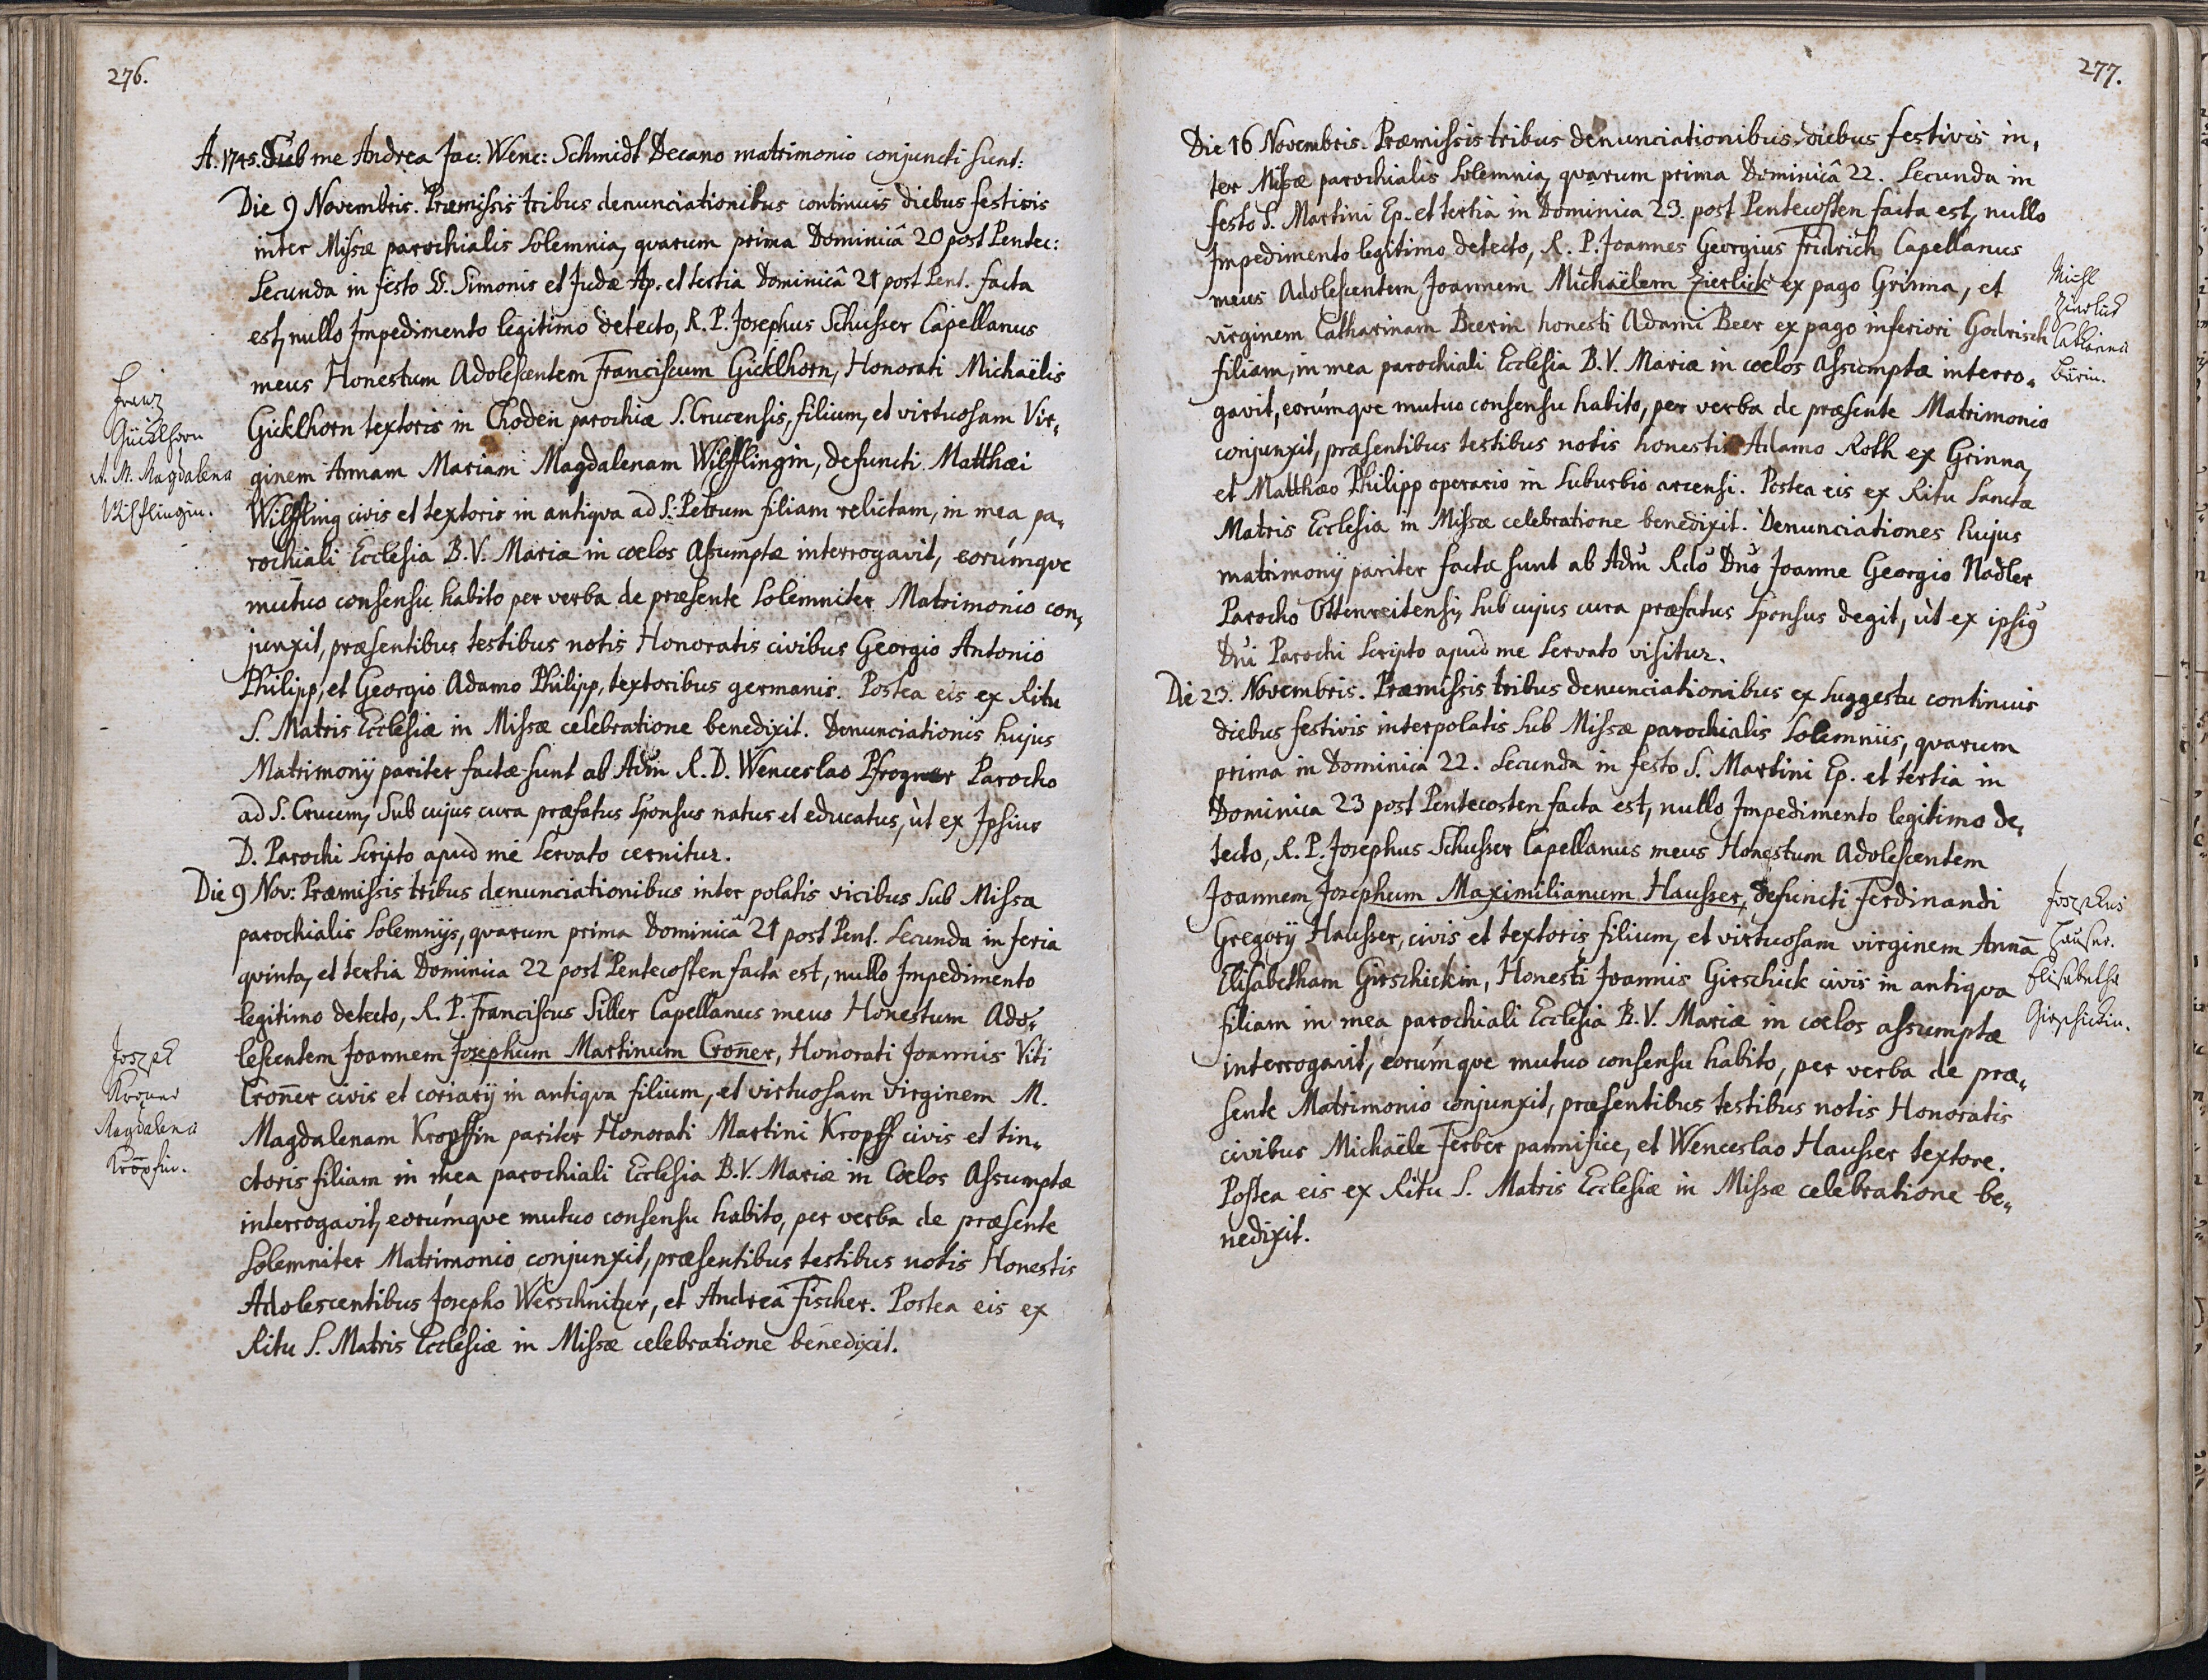 276.
A. 1745. Sub me Andrea Jac: Wenc: Schmidt Decano matrimonio conjuncti sunt:
Die 9 Novembris. Præmissis tribus denunciationibus continuis diebus festivis
inter Missæ parochialis Solemnia, quarum prima Dominicâ 20 post Pentec:
Secunda in festo SS. Simonis et Judæ Ap. et tertia Dominicâ 21 post Pent. facta
est, nullo Impedimento legitimo detecto, R. P. Josephus Schusser Capellanus
meus Honestum Adolescentem Franciscum Gicklhorn, Honorati Michaëlis
Gicklhorn textoris in Choden parochiæ S. Crucensis, filium, et virtuosam Vir,
ginem Annam Mariam Magdalenam Wilfflingin, defuncti Matthæi
Wilffling civis et textoris in antiqva ad S: Petrum filiam relictam, in mea pa,
rochiali Ecclesia B. V. Mariæ in cœlos Assumptæ interrogavit, eorúmqve
mutuo consensu habito per verba de præsente Solemniter Matrimonio con,
junxit, præsentibus testibus notis Honoratis civibus Georgio Antonio
Philipp, et Georgio Adamo Philipp, textoribus germanis. Postea eis ex Ritu
S. Matris Ecclesiæ in Missæ celebratione benedixit. Denunciationis hujus
Matrimonÿ pariter factæ sunt ab Adm R. D. Wenceslao Pfrogner Parocho
ad S. Crucem, Sub cujus cura præfatus Sponsus natus et educatus, ùt ex Ipsius
D. Parochi Scripto apud me Servato cernitur.
Franz
Gücklhorn
A. M. Magdalena
Wilflingin.
Die 9 Nov: Præmissis tribus denunciationibus inter polatis vicibus Sub Missa
parochialis Solemnÿs, qvarum prima Dominicâ 21 post Pent. Secunda in feria
qvinta, et tertia Dominica 22 post Pentecosten facta est, nullo Impedimento
legitimo detecto, R. P. Franciscus Siller Capellanus meus Honestum Ado,
lescentem Joannem Josephum Martinum Cron̄er, Honorati Joannis Viti
Cron̄er civis et coriarÿ in antiqva filium, et virtuosam virginem M.
Magdalenam Kropffin pariter Honorati Martini Kropff civis et tin,
ctoris filiam in mea parochiali Ecclesia B. V. Mariæ in Cœlos Assumptæ
interrogavit, eorúmqve mutuo consensu habito, per verba de præsente
Solemniter Matrimonio conjunxit, præsentibus testibus notis Honestis
Adolescentibus Josepho Werschnitzer, et Andreâ Fischer. Postea eis ex
Ritu S. Matris Ecclesiæ in Missæ celebratione benedixit.
Joseph
Kroner
Magdalena
Kropfin.
277.
Die 16 Novembris. Præmissis tribus denunciationibus diebus festivis in,
ter Missæ parochialis Solemnia, qvarum prima Dominicâ 22. Secunda in
festo S. Martini Ep. et tertia in Dominica 23. post Pentecosten facta est, nullo
Impedimento legitimo detecto, R. P. Joannes Georgius Fridrich Capellanus
meus Adolescentem Joannem Michaëlem Zierlick ex pago Grinna, et
virginem Catharinam Beerin honesti Adami Beer ex pago inferiori Godrisch
filiam, in mea parochiali Ecclesia B. V. Mariæ in cœlos Assumptæ interro,
gavit, eorúmqve mutuo consensu habito, per verba de præsente Matrimonio
conjunxit, præsentibus testibus notis honestis Adamo Roth ex Grinna,
et Matthæo Philipp operario in Suburbio arcensi. Postea eis ex Ritu Sanctæ
Matris Ecclesiæ in Missæ celebratione benedixit. Denunciationes hujus
matrimonÿ pariter factæ sunt ab Adm Rdo Dno Joanne Georgio Nadler
Parocho Ottenreitensi, Sub cujus cura præfatus Sponsus degit, ùt ex ipsig
Dni Parochi Scripto apud me Servato visitur.
Michl
Zierlick
Catharina
Bärin.
Die 23. Novembris. Præmissis tribus denunciationibus ex Suggestu continuis
diebus festivis interpolatis Sub Missæ parochialis Solemniis, qvarum
prima in Dominicâ 22. Secunda in festo S. Martini Ep. et tertia in
Dominica 23 post Pentecosten facta est, nullo Impedimento legitimo de,
tecto, R. P. Josephus Schusser Capellanus meus Honestum Adolescentem
Joannem Josephum Maximilianum Hausser, defuncti Ferdinandi
Gregorÿ Hausser, civis et textoris filium, et virtuosam virginem Annā
Elisabetham Girschickin, Honesti Joannis Girschick civis in antiqva
filiam in mea parochiali Ecclesia B. V. Mariæ in cœlos assumptæ
interrogavit, eorúmqve mutuo consensu habito, per verba de præ,
sente Matrimonio conjunxit, præsentibus testibus notis Honoratis
civibus Michaële Ferber pannifice, et Wenceslao Hausser textore.
Postea eis ex Ritu S. Matris Ecclesiæ in Missæ celebratione be,
nedixit.
Josephus
Hauser.
Elisabetha
Girschickin.